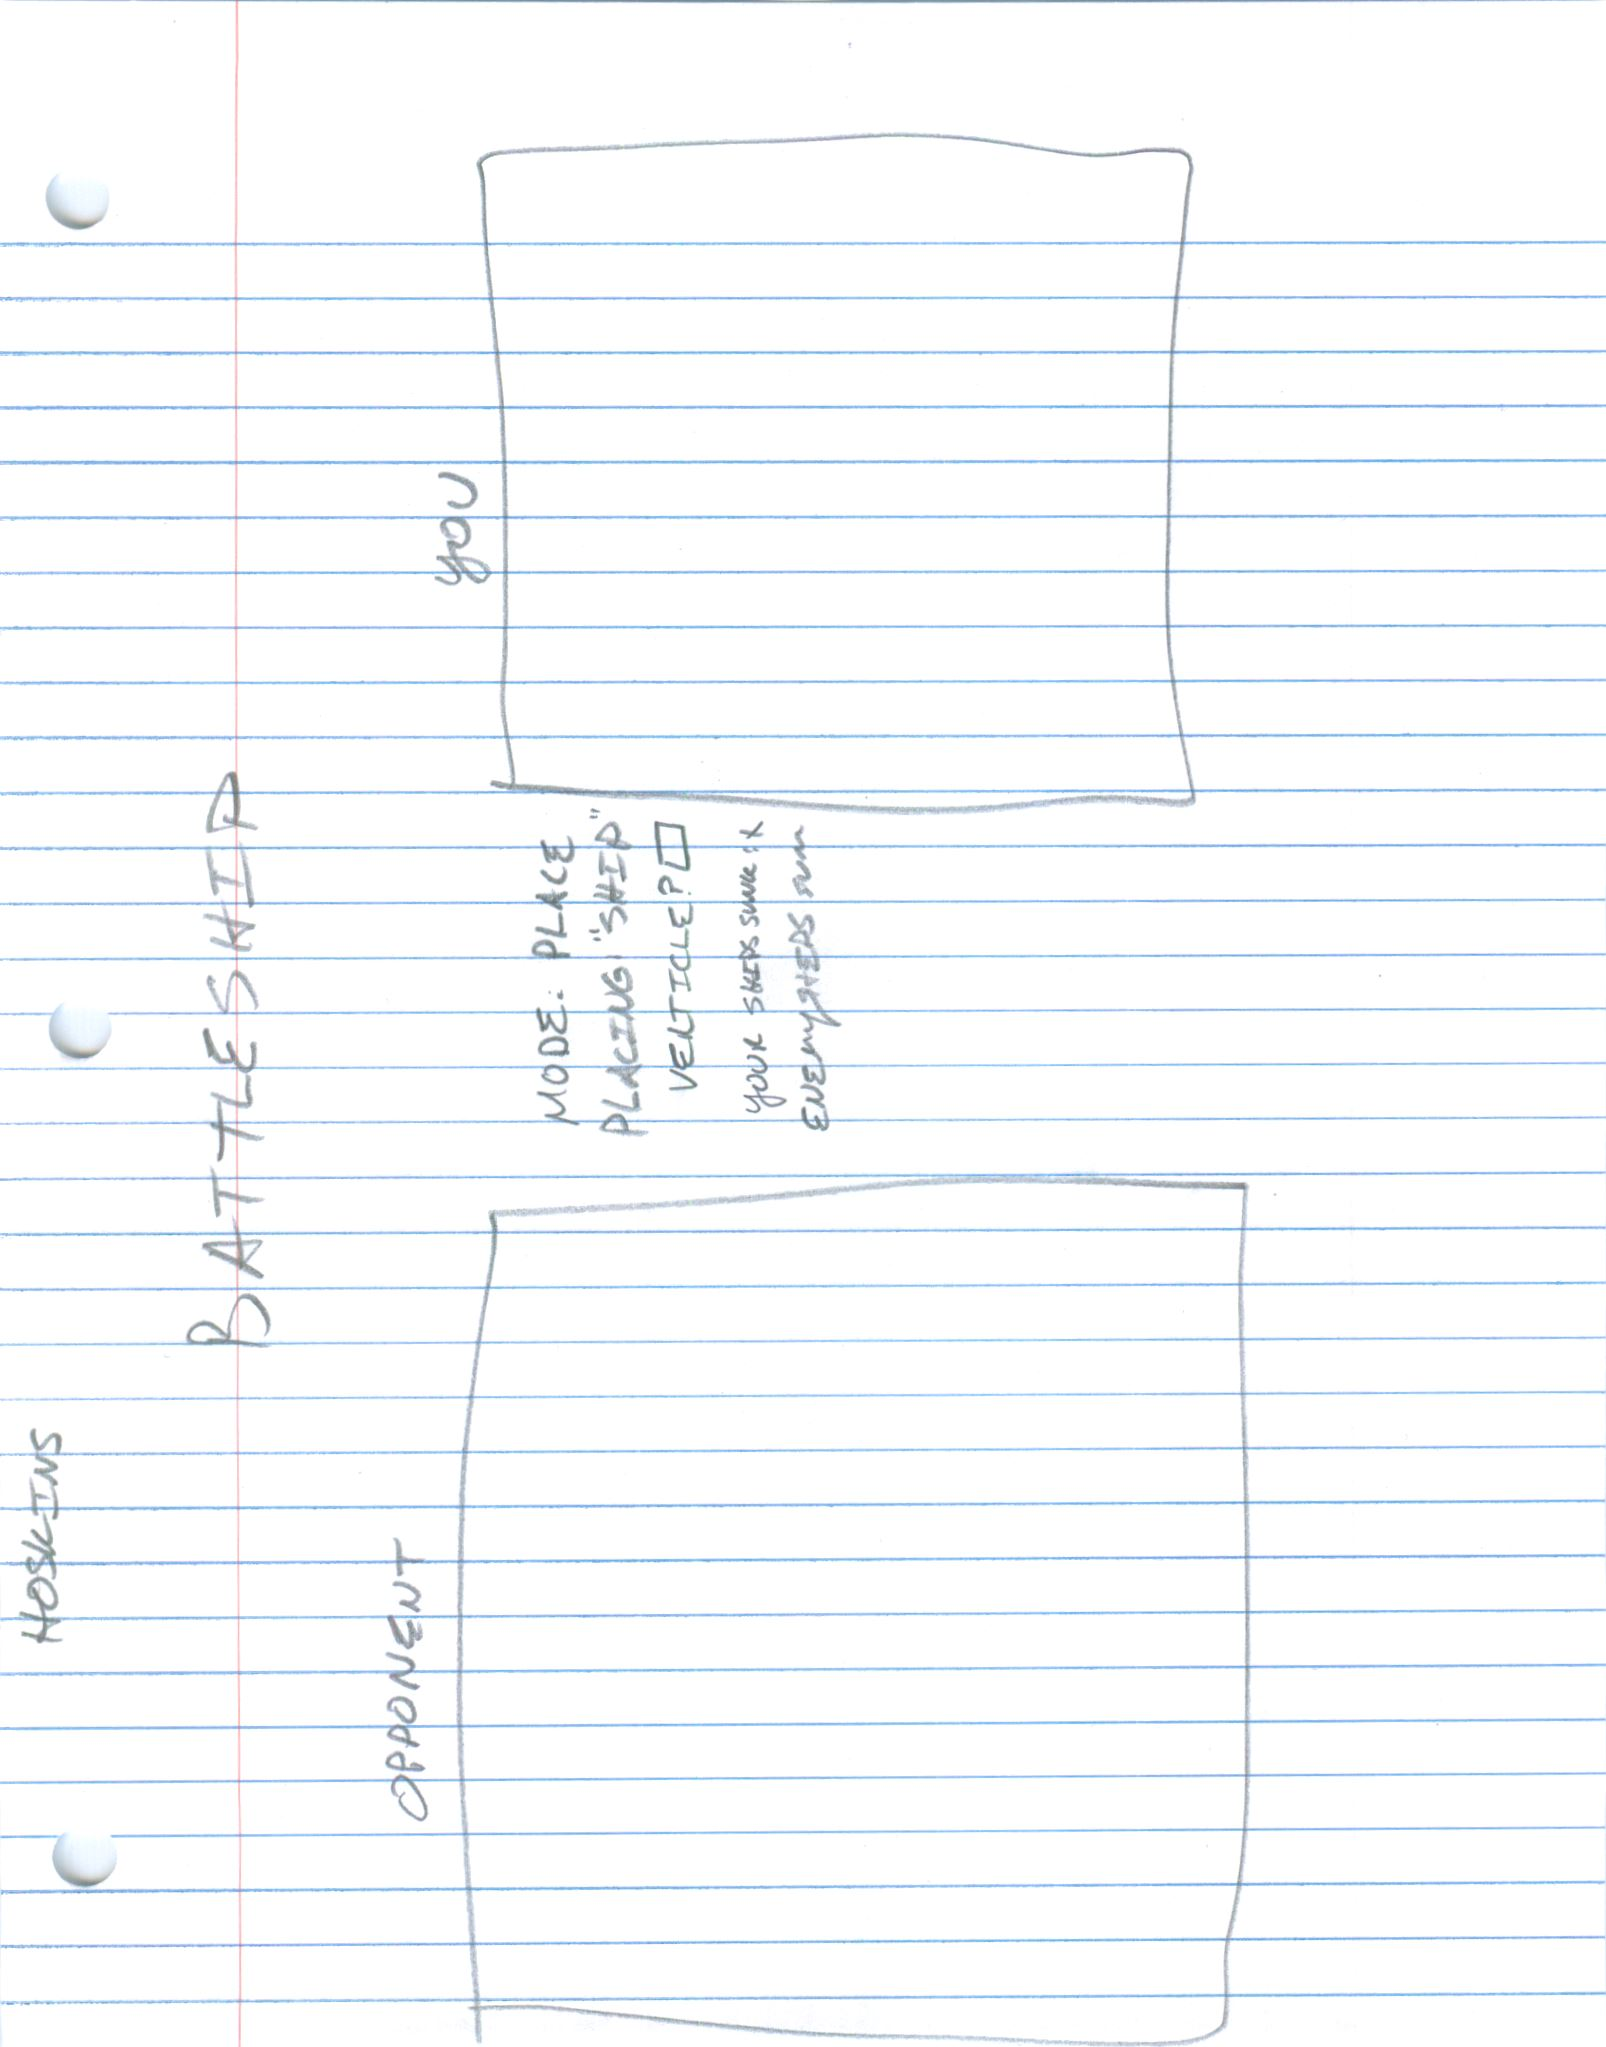 HOSKINS
BATTLESHIP
OPPONENT
YOU
MODE: PLACE
PLACING: "SHIP"
VERTICLE?
YOUR SHIPS SUNK: X
ENEMY SHIPS SUNK